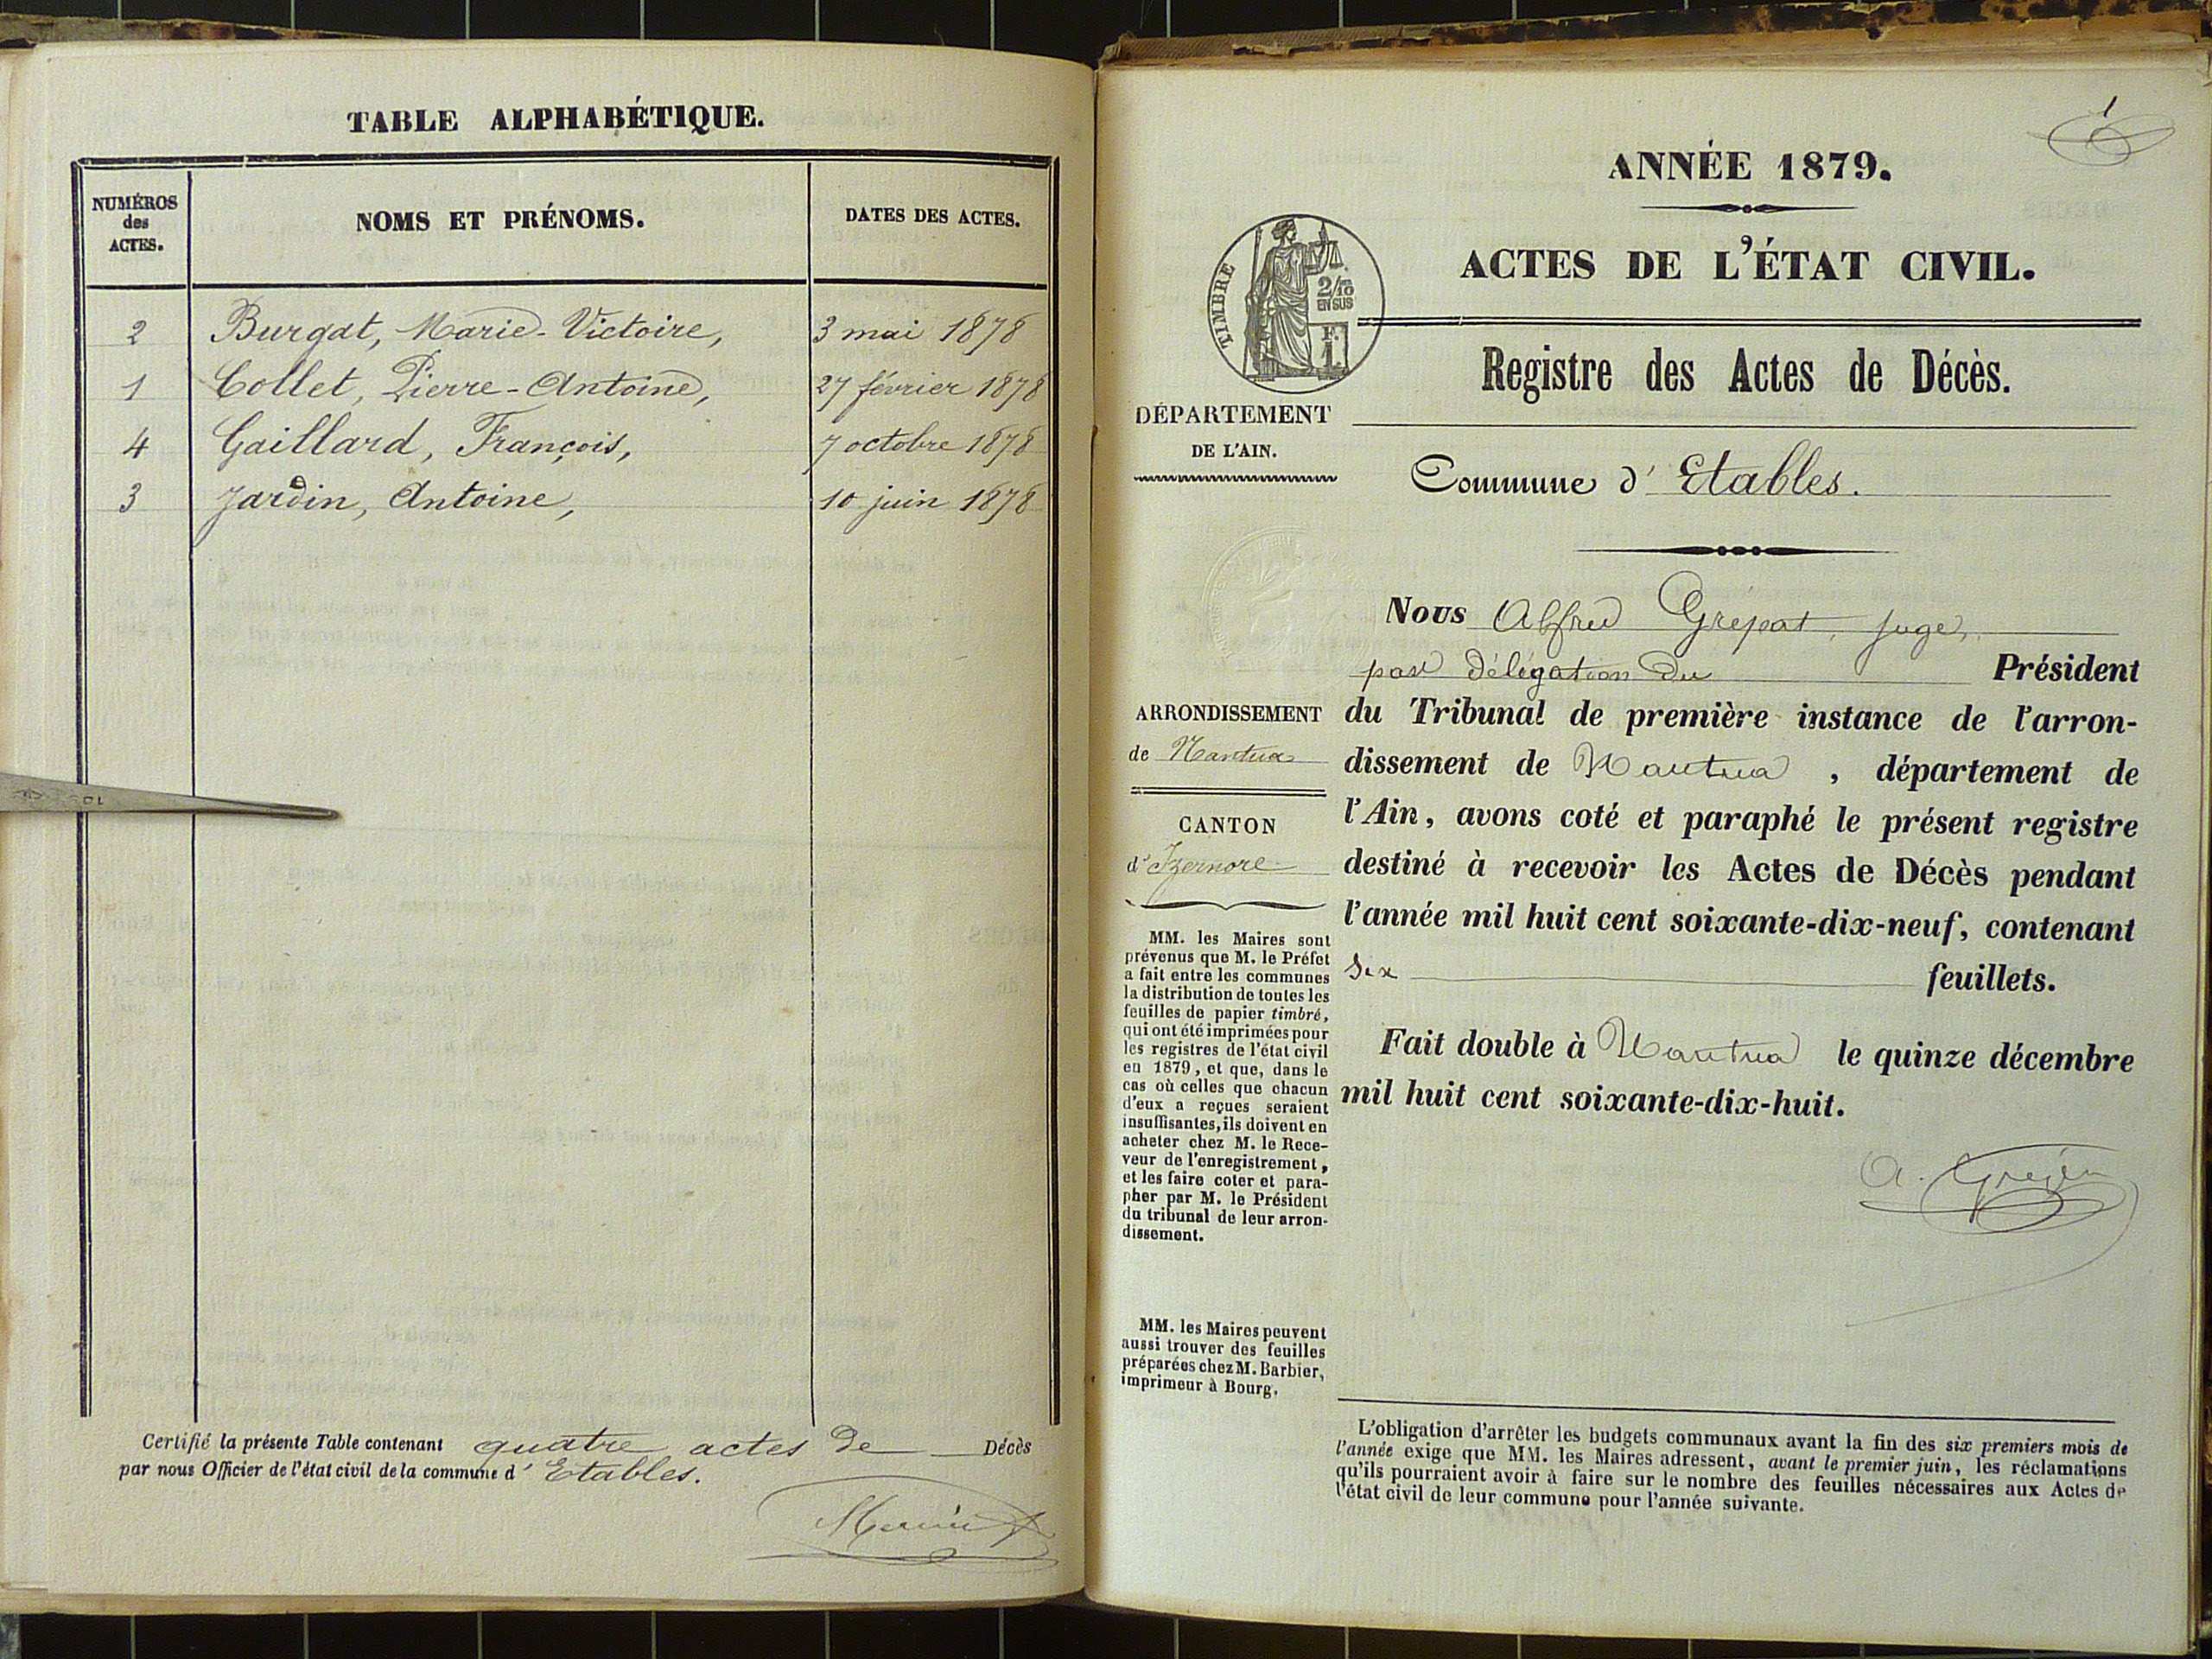 TABLE ALPHABÉTIQUE.
NUMÉROS
des
ACTES.
NOMS ET PRÉNOMS.
DATES DES ACTES.
2 Burgat, Marie-Victoire, 3 mai 1878
1 Collet, Pierre-Antoine, 27 février 1878
4 Gaillard, François, 7 octobre 1878
3 Jardin, Antoine, 10 juin 1878
Certifié la présente Table contenant quatre actes de Décès
par nous Officier de l'état civil de la commune d' Etables.
1
ANNÉE 1879.
ACTES DE L'ÉTAT CIVIL.
TIMBRE
2/10
EN SUS
F.
1.
Registre des Actes de Décès.
DÉPARTEMENT
DE L'AIN.
Commune d' Etables.
Nous Alfred Grépat, juge,
par délégation du Président
du Tribunal de première instance de l'arron-
dissement de Nantua, département de
l'Ain, avons coté et paraphé le présent registre
destiné à recevoir les Actes de Décès pendant
l'année mil huit cent soixante-dix-neuf, contenant
six feuillets.
Fait double à Nantua le quinze décembre
mil huit cent soixante-dix-huit.
ARRONDISSEMENT
de Nantua
CANTON
d'Izernore
MM. les Maires sont
prévenus que M. le Préfet
a fait entre les communes
la distribution de toutes les
feuilles de papier timbré,
qui ont été imprimées pour
les registres de l'état civil
en 1879, et que, dans le
cas où celles que chacun
d'eux a reçues seraient
insuffisantes, ils doivent en
acheter chez M. le Rece-
veur de l'enregistrement,
et les faire coter et para-
pher par M. le Président
du tribunal de leur arron-
dissement.
MM. les Maires peuvent
aussi trouver des feuilles
préparées chez M. Barbier,
imprimeur à Bourg.
L'obligation d'arrêter les budgets communaux avant la fin des six premiers mois de
l'année exige que MM. les Maires adressent, avant le premier juin, les réclamations
qu'ils pourraient avoir à faire sur le nombre des feuilles nécessaires aux Actes de
l'état civil de leur commune pour l'année suivante.